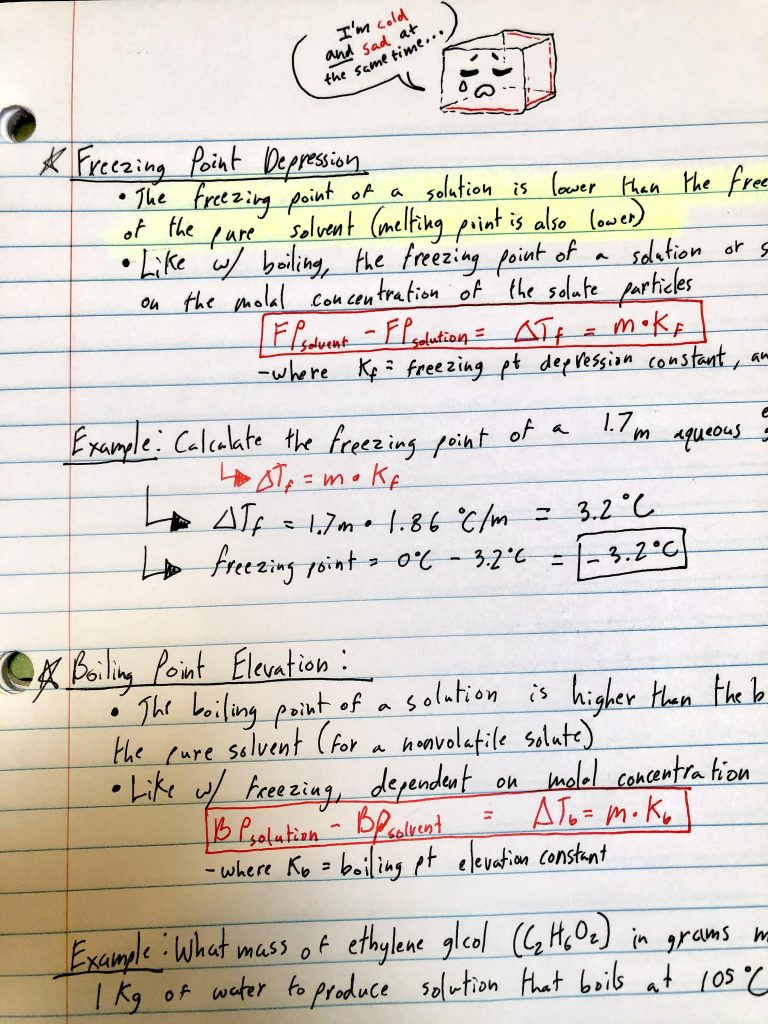 I'm cold
and sad at
the same time...
☆ Freezing Point Depression
• The freezing point of a solution is lower than the free
of the pure solvent (melting point is also lower)
• Like w/ boiling, the freezing point of a solution or s
on the molal concentration of the solute particles
FPsolvent - FPsolution = ΔTf = m•Kf
-where Kf = freezing pt depression constant, an
Example: Calculate the freezing point of a 1.7m aqueous
↳ ΔTf = m•Kf
↳ ΔTf = 1.7m • 1.86 °C/m = 3.2°C
↳ freezing point = 0°C - 3.2°C = -3.2°C
☆ Boiling Point Elevation:
• The boiling point of a solution is higher than the b
the pure solvent (for a nonvolatile solute)
• Like w/ freezing, dependent on molal concentration
BPsolution - BPsolvent = ΔTb = m•Kb
-where Kb = boiling pt elevation constant
Example: What mass of ethylene glcol (C2H6O2) in grams m
1 Kg of water to produce solution that boils at 105°C